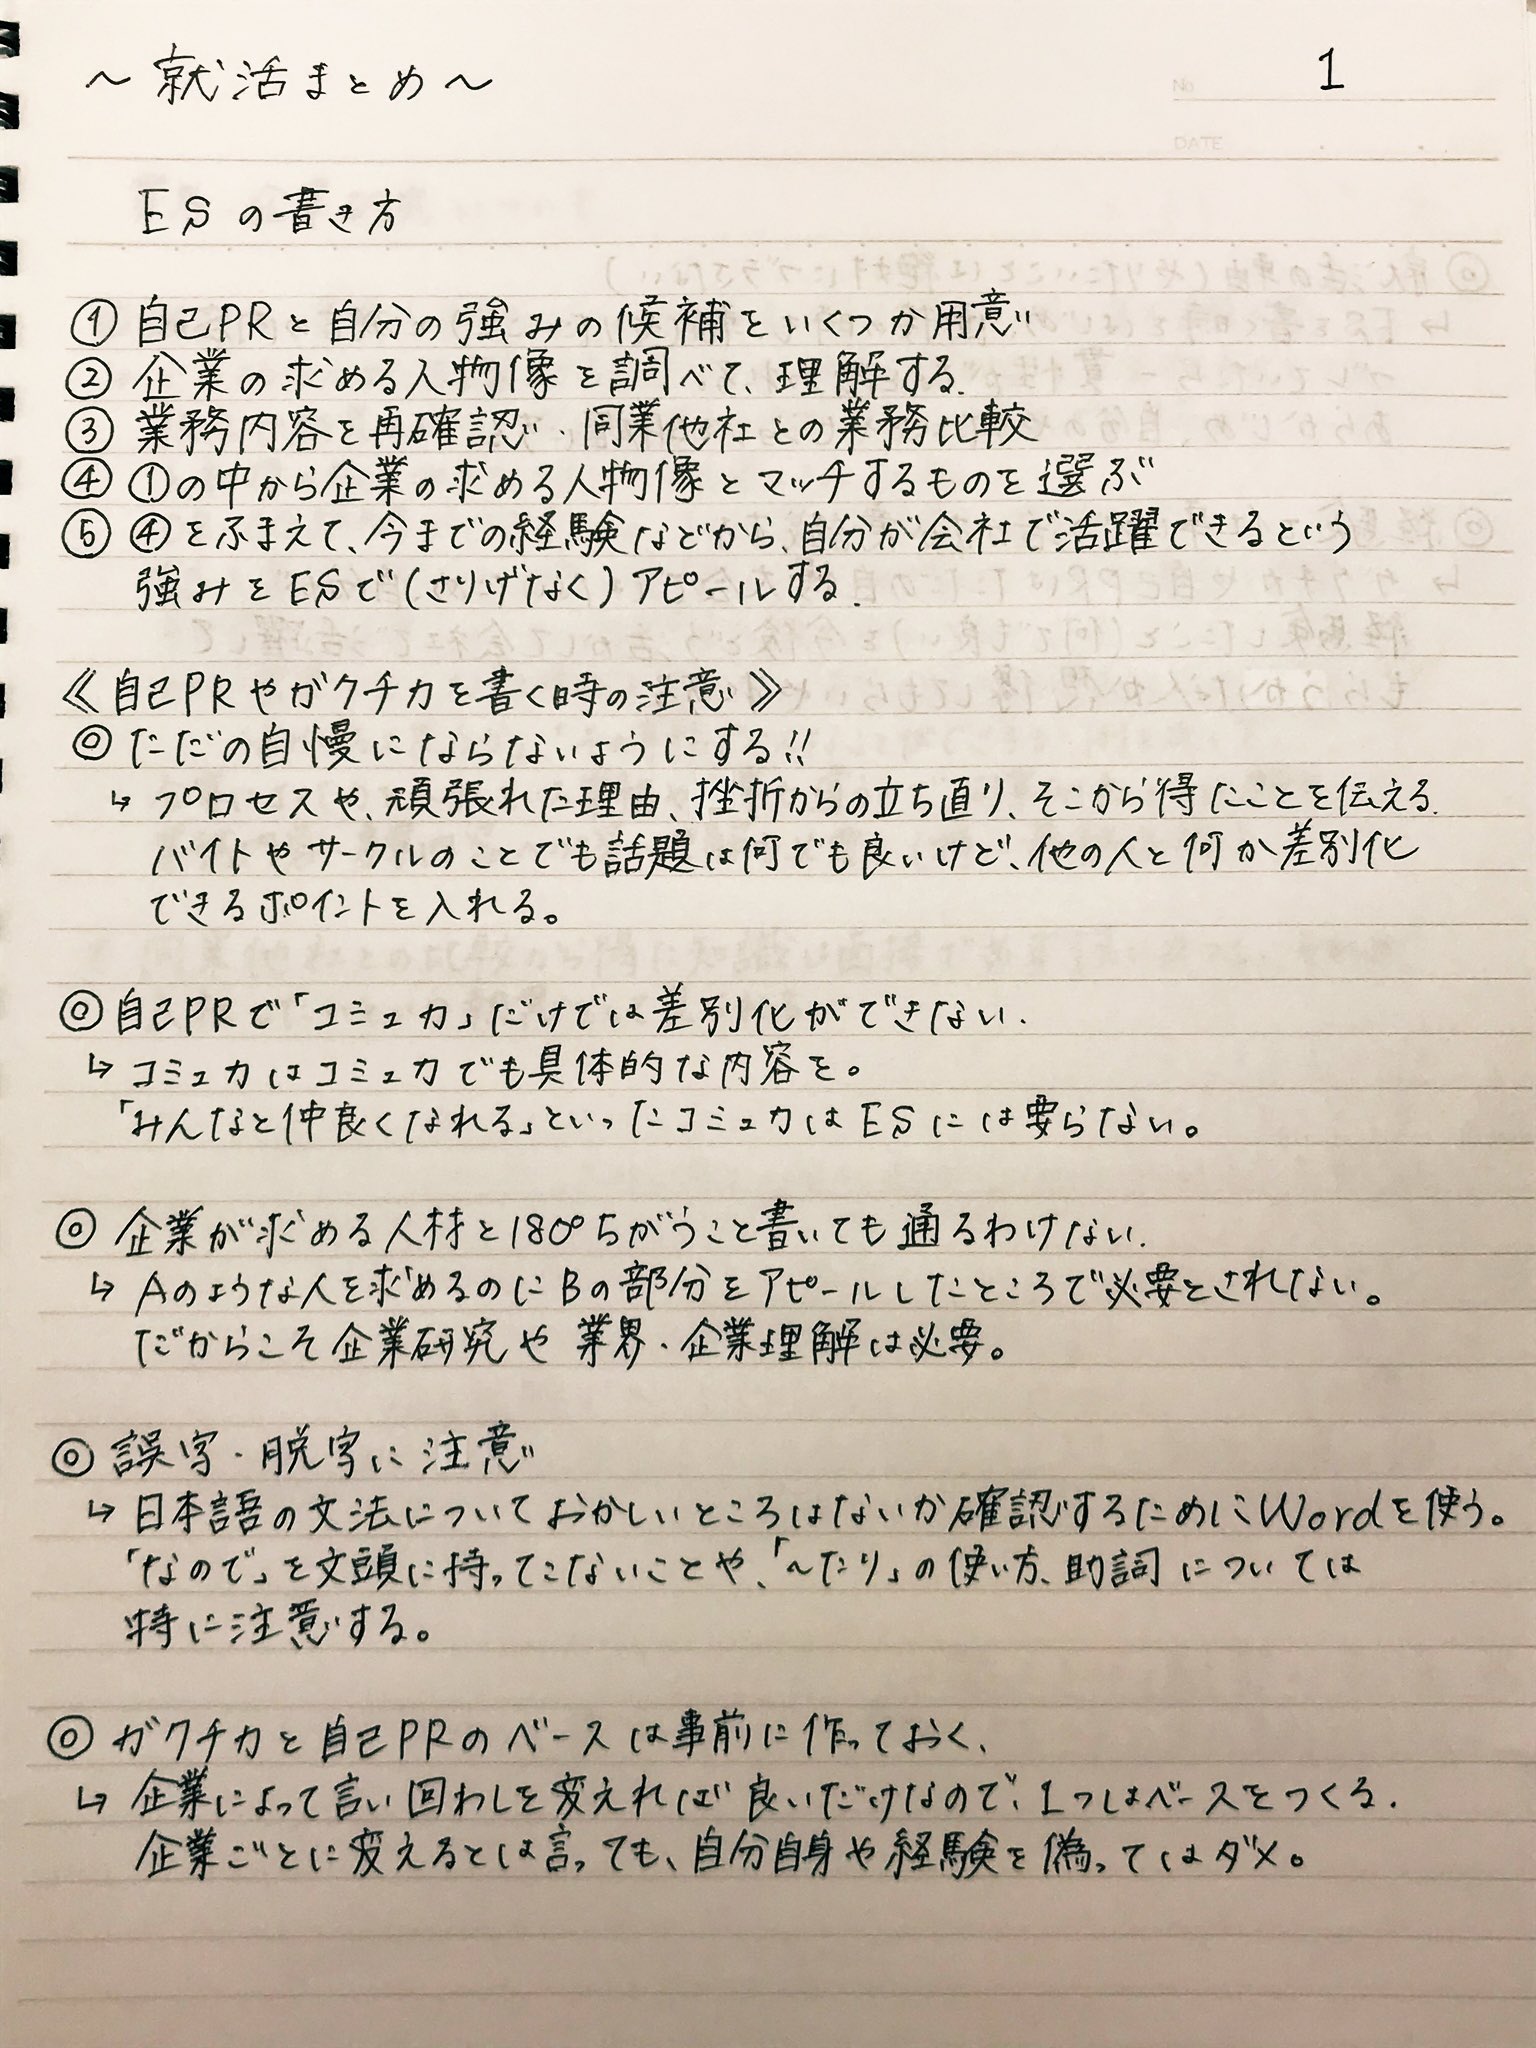 ～就活まとめ～
No 1
DATE
ESの書き方
① 自己PRと自分の強みの候補をいくつか用意
② 企業の求める人物像を調べて、理解する.
③ 業務内容を再確認・同業他社との業務比較
④ ①の中から企業の求める人物像とマッチするものを選ぶ
⑤ ④をふまえて、今までの経験などから、自分が会社で活躍できるという
強みをESで(さりげなく)アピールする.
《自己PRやガクチカを書く時の注意》
◎ ただの自慢にならないようにする!!
↳ プロセスや、頑張れた理由、挫折からの立ち直り、そこから得たことを伝える.
バイトやサークルのことでも話題は何でも良いけど、他の人と何か差別化
できるポイントを入れる。
◎ 自己PRで「コミュ力」だけでは差別化ができない.
↳ コミュ力はコミュ力でも具体的な内容を。
「みんなと仲良くなれる」といったコミュ力はESには要らない。
◎ 企業が求める人材と180°ちがうこと書いても通るわけない.
↳ Aのような人を求めるのにBの部分をアピールしたところで必要とされない。
だからこそ企業研究や業界・企業理解は必要。
◎ 誤字・脱字に注意
↳ 日本語の文法についておかしいところはないか確認するためにWordを使う。
「なので」を文頭に持ってこないことや、「～たり」の使い方、助詞については
特に注意する。
◎ ガクチカと自己PRのベースは事前に作っておく、
↳ 企業によって言い回わしを変えれば良いだけなので、1つはベースをつくる.
企業ごとに変えるとは言っても、自分自身や経験を偽ってはダメ。